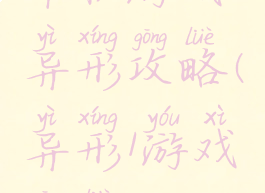 yì xíng gōng lüè
异形攻略(
yì xíng yóu xì
异形/游戏